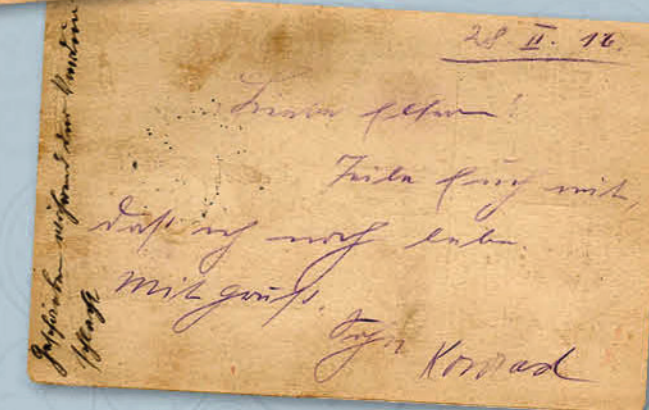 28. II. 16.
Liebe Eltern!
Teile Euch mit,
daß ich noch lebe.
Mit Gruß.
Sohn Konrad
Geschrieben während der Verdun
schlacht